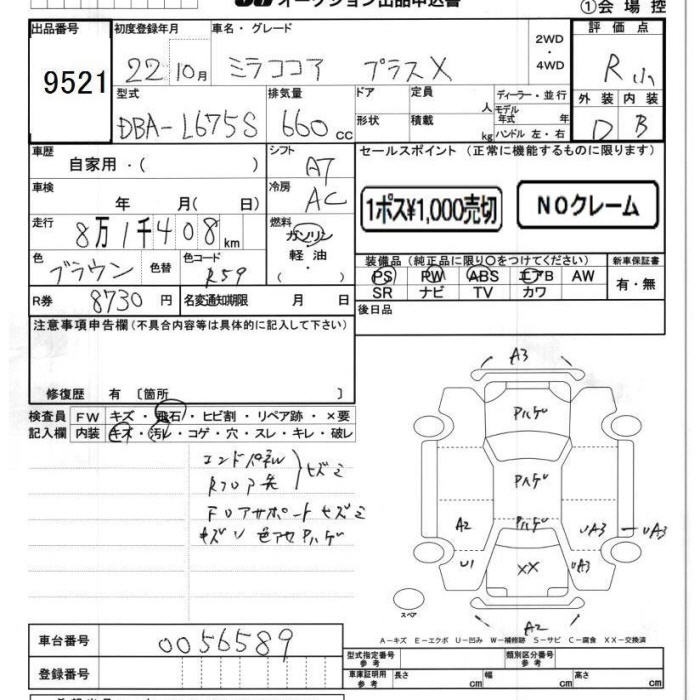 オークション出品申込書
①会場控
出品番号 初度登録年月 車名・グレード 2WD ・ 4WD 評価点
9521 22 10月 ミラココア プラスX R小
型式 排気量 ドア 定員 人 ディーラー・並行 外装 内装
DBA-L675S 660 CC 形状 積載 kg モデル年式 年 ハンドル 左・右 D B
車歴 自家用・( ) シフト AT セールスポイント (正常に機能するものに限ります)
車検 年 月( 日) 冷房 AC 1ポス¥1,000売切 NOクレーム
走行 8万1千408km 燃料 ガソリン 軽油・( )
装備品 (純正品に限り○をつけてください) 新車保証書
色 ブラウン 色替 色コード R59 PS PW ABS エアB AW 有・無
SR ナビ TV カワ
R券 8730円 名変通知期限 月 日 後日品
注意事項申告欄(不具合内容等は具体的に記入して下さい)
修復歴 有 〔箇所 〕
検査員 FW キズ・飛石・ヒビ割・リペア跡・×要
記入欄 内装 キズ・汚レ・コゲ・穴・スレ・キレ・破レ
エンドパネル
Rフロア先 ヒズミ
Fロアサポートヒズミ
キズリ 色アセ Pハゲ
A3
Pハゲ
Pハゲ
A2 Pハゲ UA3 UA3
U1 XX UA3
スペア
A2
A-キズ E-エクボ U-凹み W-補修跡 S-サビ C-腐食 XX-交換済
車台番号 0056589 型式指定番号 参考 類別区分番号 参考
登録番号 車庫証明用 参考 長さ cm 幅 cm 高さ cm